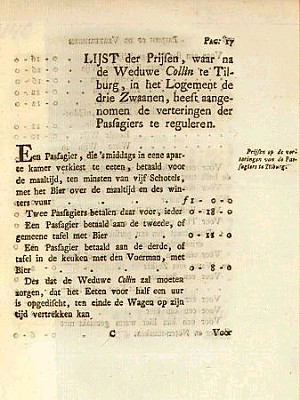 PAG: 17
LIJST der Prijsen, waar na
de Weduwe Collin te Til-
burg, in het Logement de
drie Zwaanen, heeft aange-
nomen de verteringen der
Passagiers te reguleren.
Een Passagier, die 's middags in eene apar-
te kamer verkiest te eeten, betaald voor
de maaltijd, ten minsten van vijf Schotels,
met het Bier over de maaltijd en des win-
ters vuur f1-0-0
Twee Passagiers betalen daar voor, ieder 0-18-0
Een Passagier betaald aan de tweede, of
gemeene tafel met Bier 0-18-0
Een Passagier betaald aan de derde, of
tafel in de keuken met den Voerman, met
Bier 0-8-0
Des dat de Weduwe Collin zal moeten
zorgen, dat het Eeten voor half een uur
is opgedischt, ten einde de Wagen op zijn
tijd vertrekken kan
C Voor
Prijsen op de ver-
teeringen van de Pas-
sagiers te Tilburg.